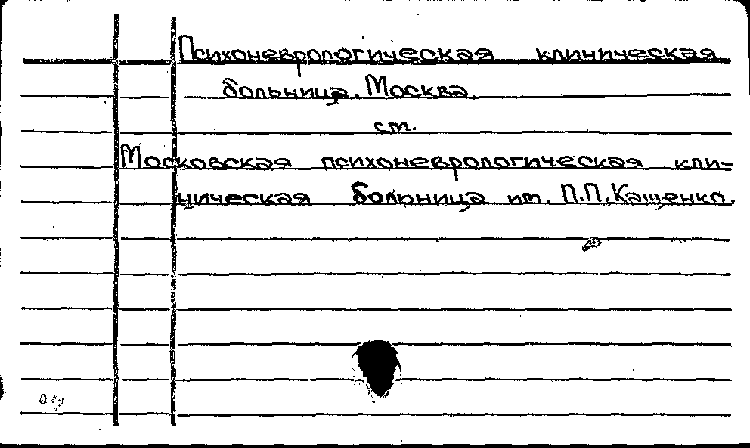 Психоневрологическая клиническая
больница. Москва.
см.
Московская психоневрологическая кли-
ническая больница им. П.П.Кащенко.